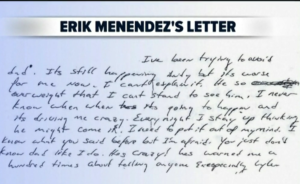 ERIK MENENDEZ'S LETTER
I've been trying to avoid
dad. Its still happening Andy but its worse
for me now. I can't explain it. He so
overweight that I can't stand to see him. I never
know when its going to happen and
its driving me crazy. Every night I stay up thinking
he might come in. I need to put it out of my mind. I
know what you said before but I'm afraid. You just don't
know dad like I do. Hes crazy! has warned me a
hundred times about telling anyone Especially Lyle